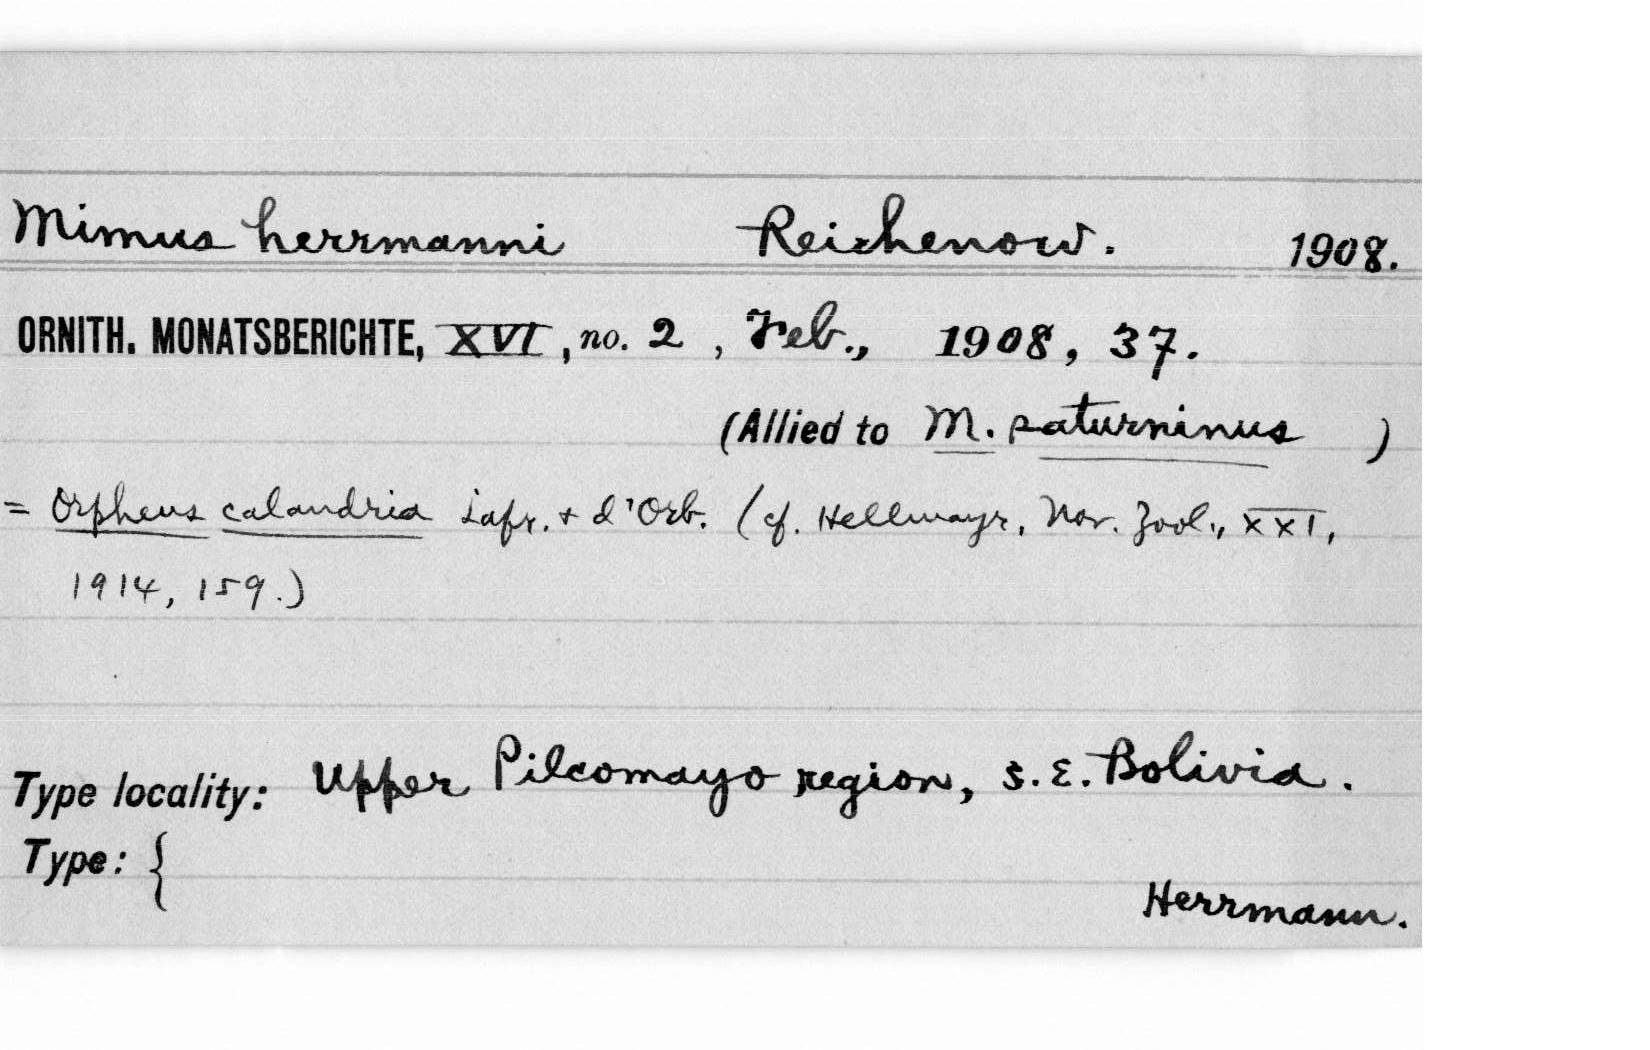 Mimus herrmanni Reichenow. 1908.
ORNITH. MONATSBERICHTE, XVI, no. 2, Feb., 1908, 37.
(Allied to M. saturninus )
= Orpheus calandria Lafr. + d'Orb. (cf. Hellmayr, Nov. Zool., XXI,
1914, 159.)
Type locality: Upper Pilcomayo region, S.E. Bolivia.
Type: {
Herrmann.